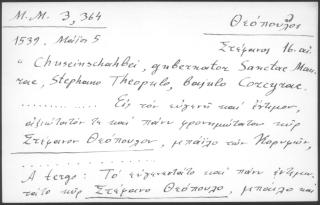 M.M. 3, 364
Θεόπουλος
1539. Μάϊος 5
Στέφανος 16. αἰ.
"Chuseinschahbei, gubernator Sanctae Mau-
rae, Stephano Theopulo, bajulo Corcyrae.
.......... Εἰς τὸν εὐγενῆ καὶ ἔντιμον,
καὶ πάνυ φρονιμώτατον κὺρ
Στέφανον Θεόπουλον, μπάϊλο τῶν Κορυφῶν,
..........
A tergo: Τῷ εὐγενεστάτῳ καὶ πάνυ ἐντιμο-
τάτῳ κὺρ Στεφάνῳ Θεοπούλῳ, μπαΐλῳ καὶ